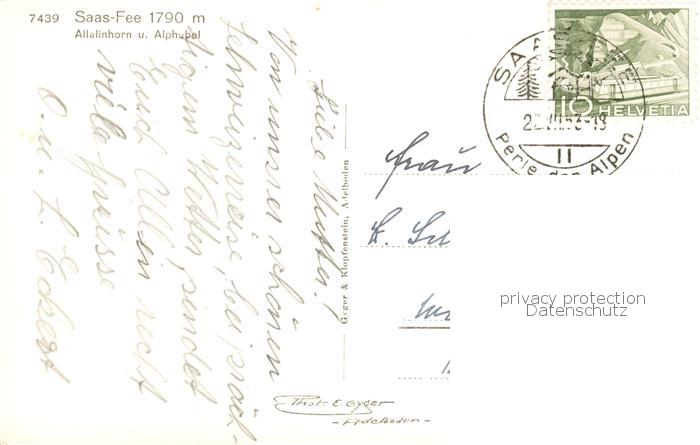 7439 Saas-Fee 1790 m
Allalinhorn u. Alphubel
Liebe Mutter!
Von unsrer schönen
Schweizerreise, bei präch-
tigem Wetter, sendet
Euch Allen recht
viele Grüsse
O. u. L. Eckert
Gyger & Klopfenstein, Adelboden
Phot. E. Gyger
- Adelboden -
Frau
SAAS-FEE
Perle der Alpen
II
10 HELVETIA
privacy protection
Datenschutz